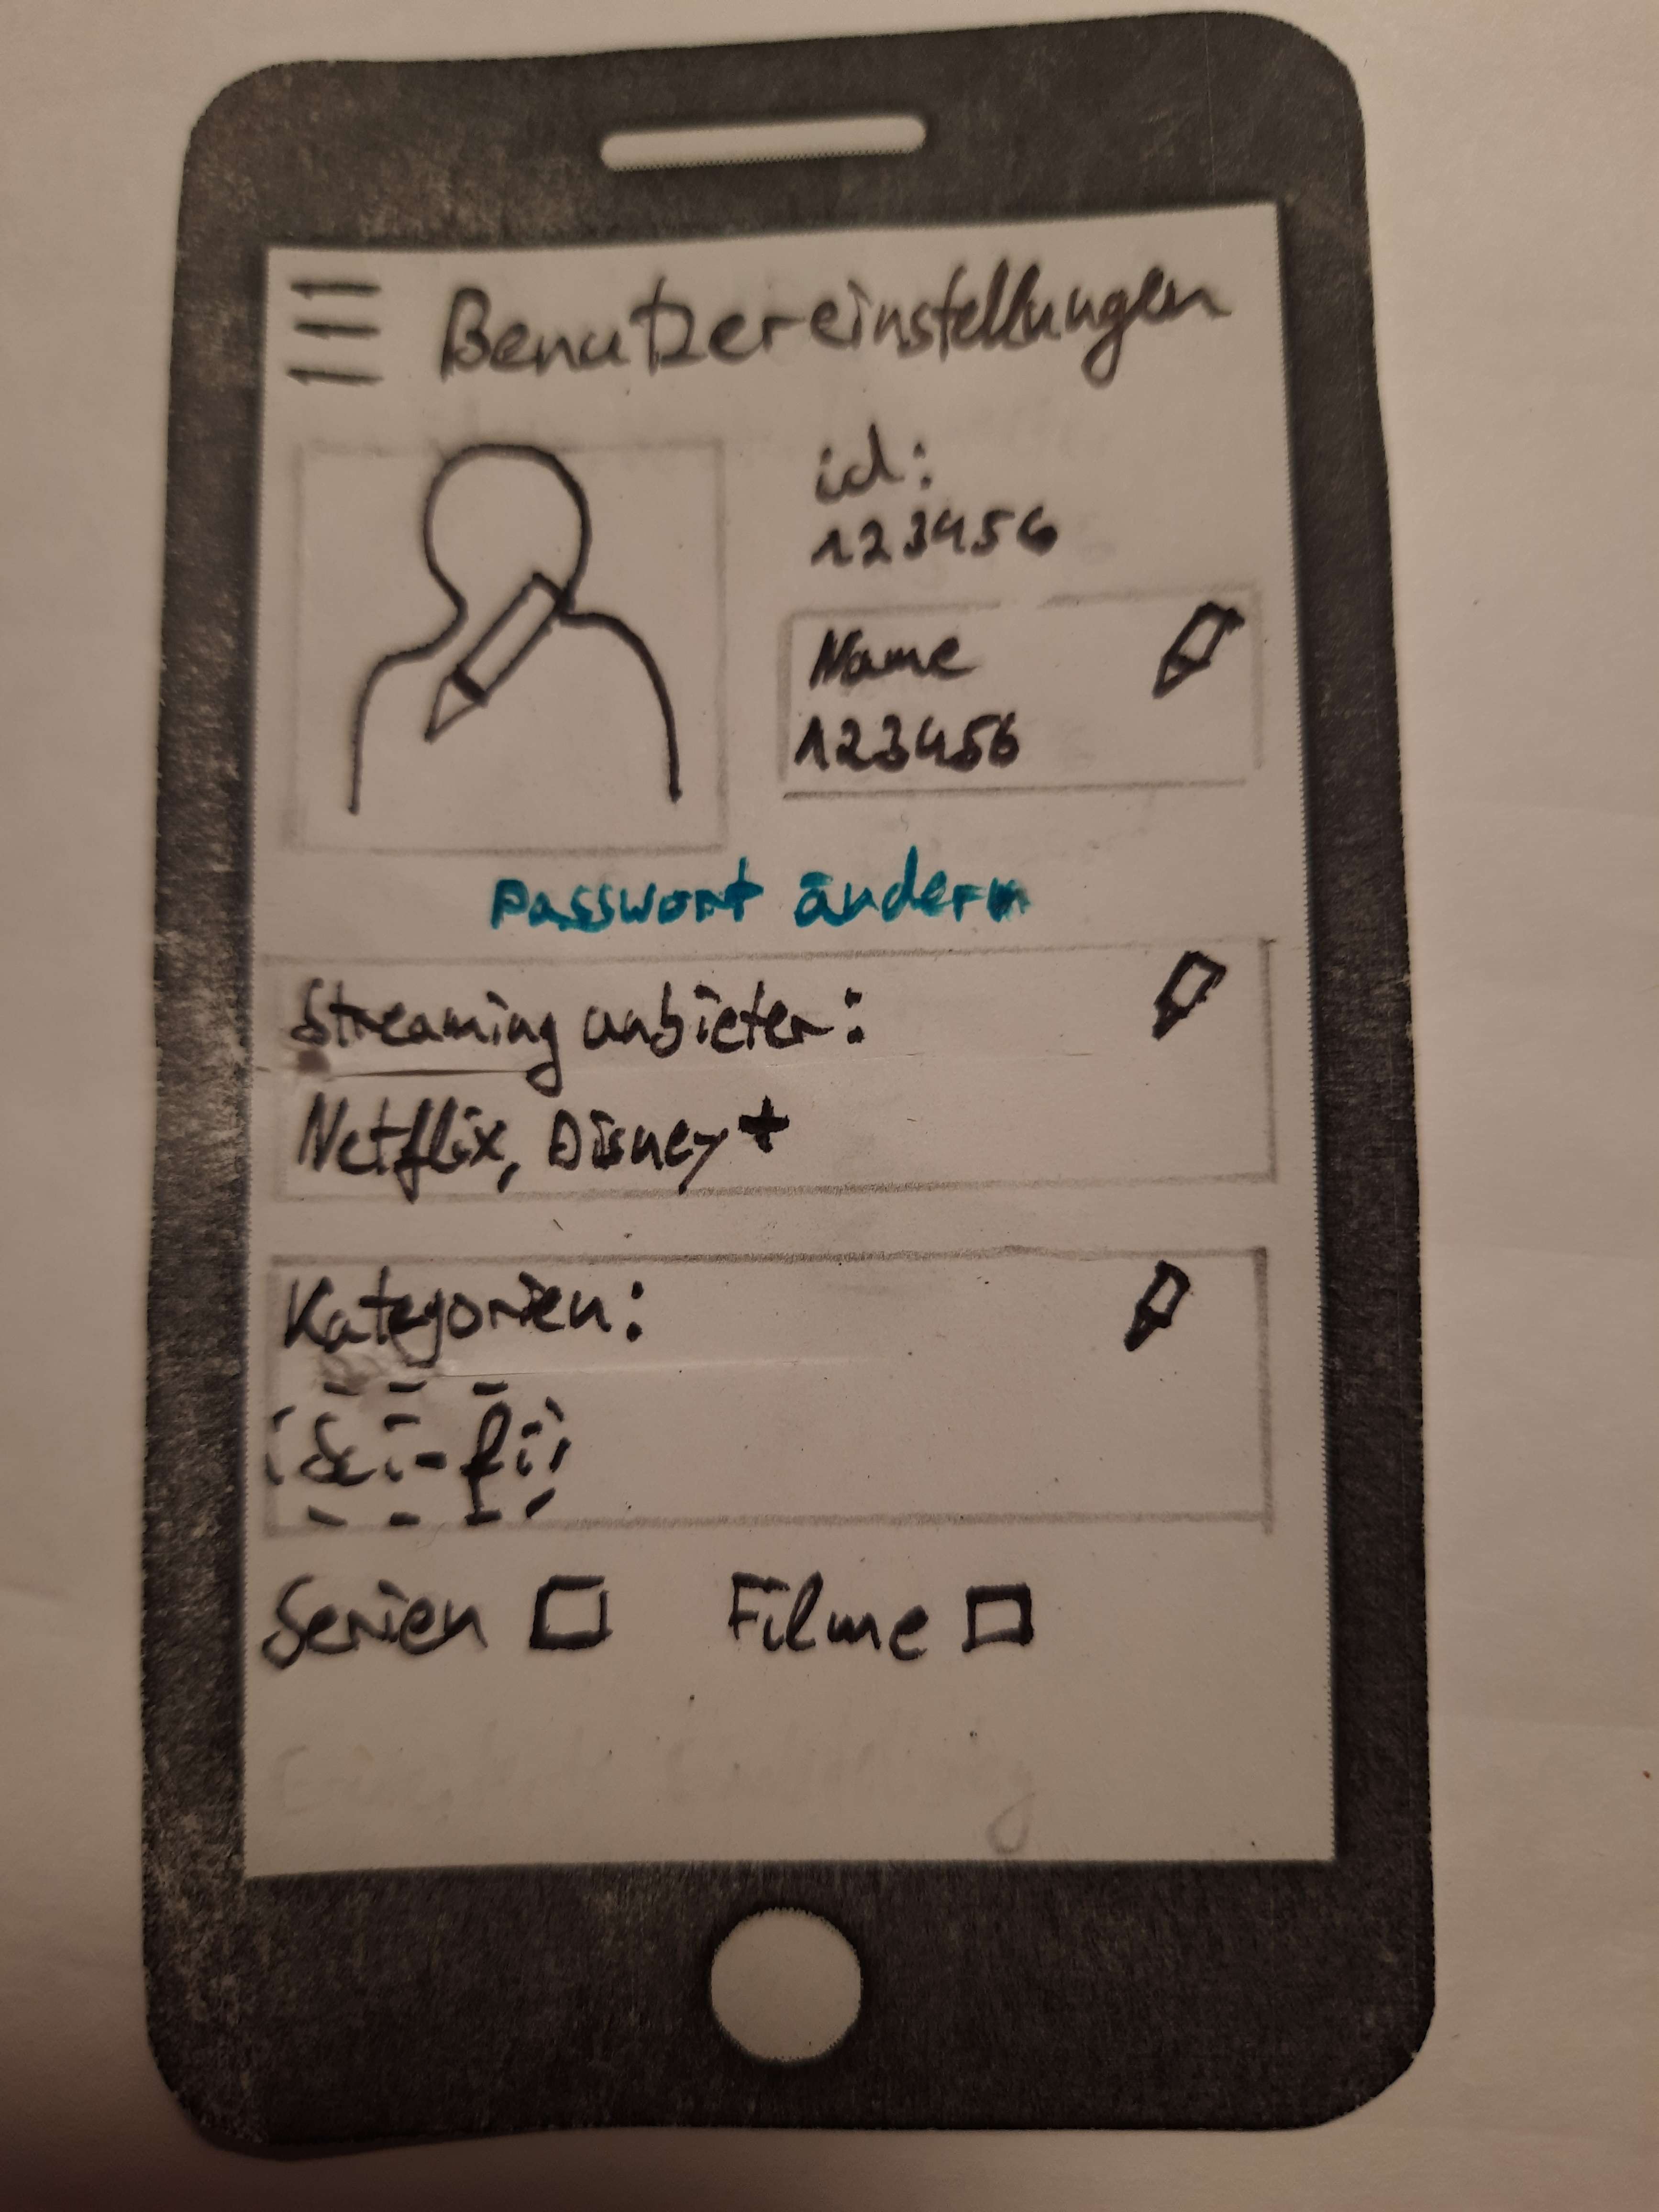 Benutzereinstellungen
id:
123456
Name
123456
Passwort ändern
Streaming anbieter:
Netflix, Disney+
Kategorien:
Sci-fi
Serien
Filme